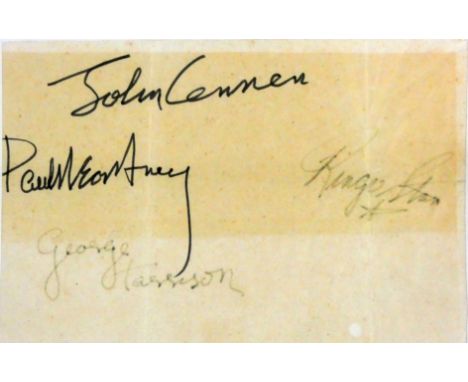 John Lennon
Paul McCartney
Ringo Starr
George
Harrison